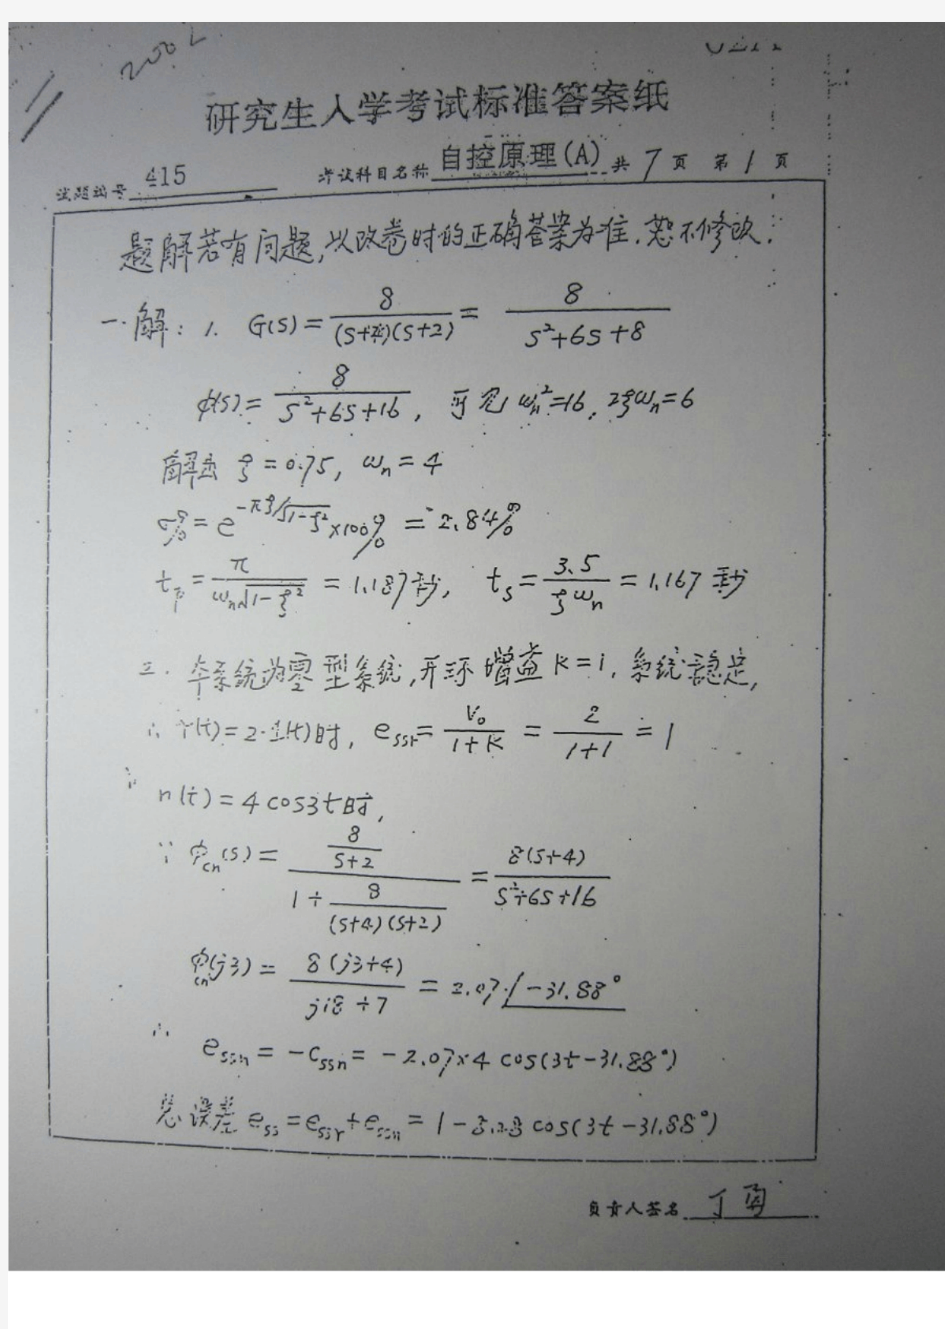 2002
研究生入学考试标准答案纸
试题编号 415 考试科目名称 自控原理(A) 共 7 页 第 1 页
题解若有问题,以改卷时的正确答案为准.恕不修改.
一.解: 1. G(S) = 8/((S+4)(S+2)) = 8/(S²+6S+8)
φ(S) = 8/(S²+6S+16), 可见 ωn²=16, 2ξωn=6
解出 ξ=0.75, ωn=4
σ% = e^(-πξ/√(1-ξ²)) ×100% = 2.84%
tp = π/(ωn√(1-ξ²)) = 1.187秒, ts = 3.5/(ξωn) = 1.167 秒
本系统为零型系统,开环增益K=1,系统稳定,
∴ r(t)=2·1(t)时, essr = V₀/(1+K) = 2/(1+1) = 1
n(t)=4cos3t时,
∵ φcn(S) = (8/(S+2))/(1+8/((S+4)(S+2))) = 8(S+4)/(S²+6S+16)
φcn(j3) = 8(j3+4)/(j18+7) = 2.07∠-31.88°
∴ essn = -Cssn = -2.07×4 cos(3t-31.88°)
总误差 ess = essr + essn = 1-8.28 cos(3t-31.88°)
负责人签名